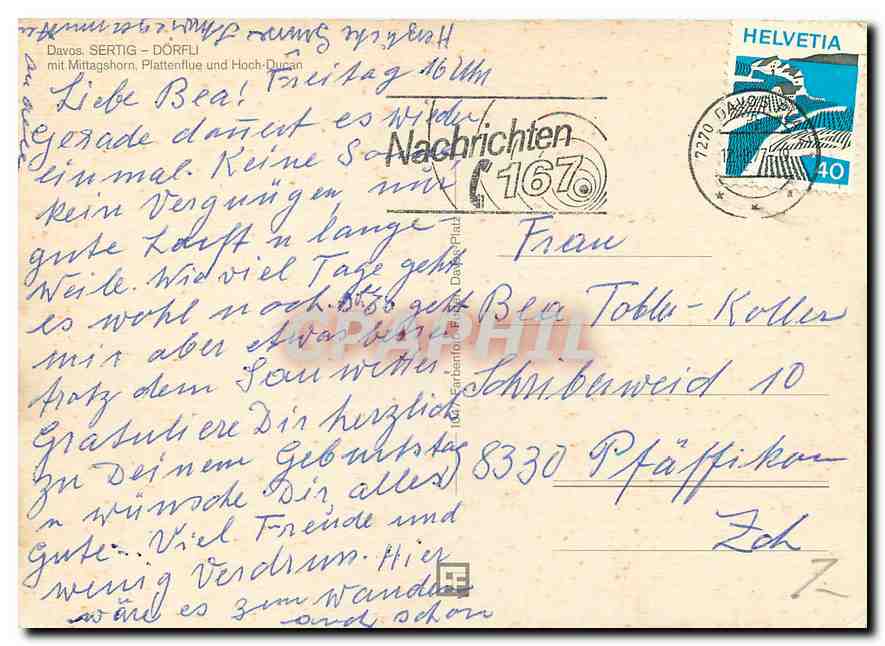 Davos. SERTIG – DÖRFLI
mit Mittagshorn, Plattenflue und Hoch-Ducan
Freitag 16 Uhr
Liebe Bea!
Gerade dauert es wieder
einmal. Keine
kein Vergnügen, nur
gute Luft u lange-
Weile. Wie viel Tage geht
es wohl noch. Es geht
mir aber etwas besser
trotz dem Sauwetter.
Gratuliere Dir herzlich
zu Deinem Geburtstag
u wünsche Dir alles
Gute. Viel Freude und
wenig Verdruss. Hier
wäre es zum Wandern
auch schon
Herzliche
HELVETIA
40
7270 DAVOS
Nachrichten
167
Frau
Bea Tobler-Koller
Schriberweid 10
8330 Pfäffikon
Zch
Farbenfoto Davos-Platz
CPAPHIL
7.-